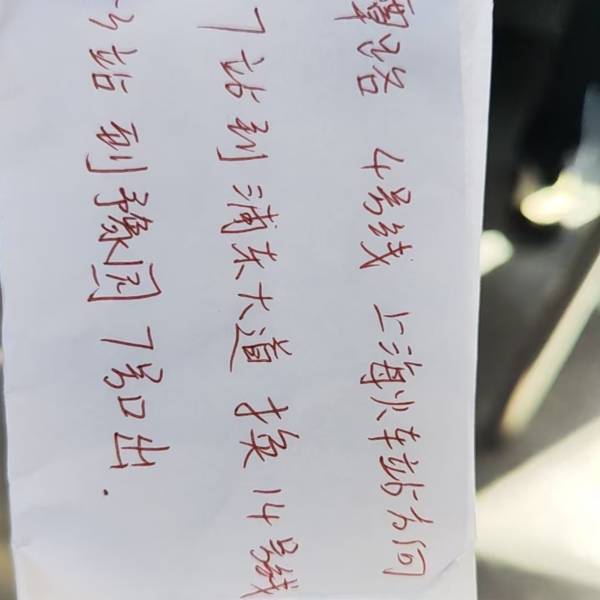 路 4号线 上海火车站方向
7站到浦东大道 换14号线
3站 到豫园 7号口出.